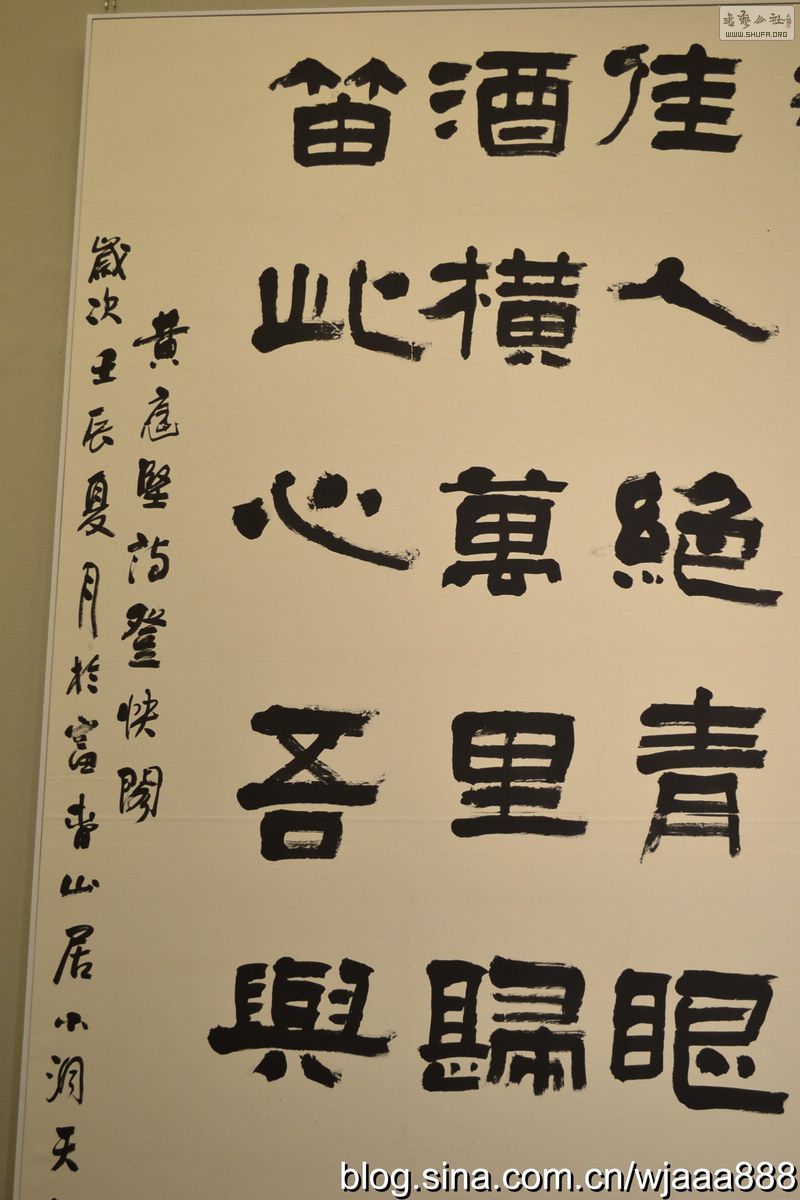 佳人絕青眼
酒橫萬里歸
笛此心吾與
黃庭堅詩登快閣
歲次壬辰夏月於富春山居小洞天
WWW.SHUFA.ORG
blog.sina.com.cn/wjaaa888